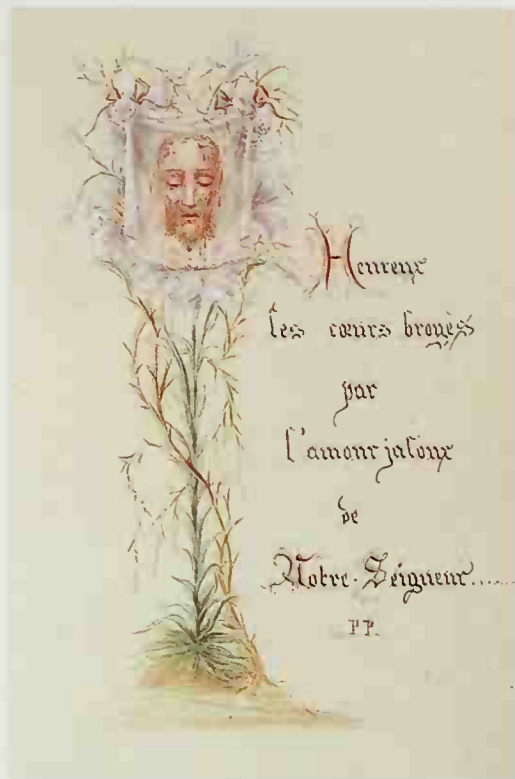 Heureux
les cœurs broyés
par
l'amour jaloux
de
Notre-Seigneur......
PP.